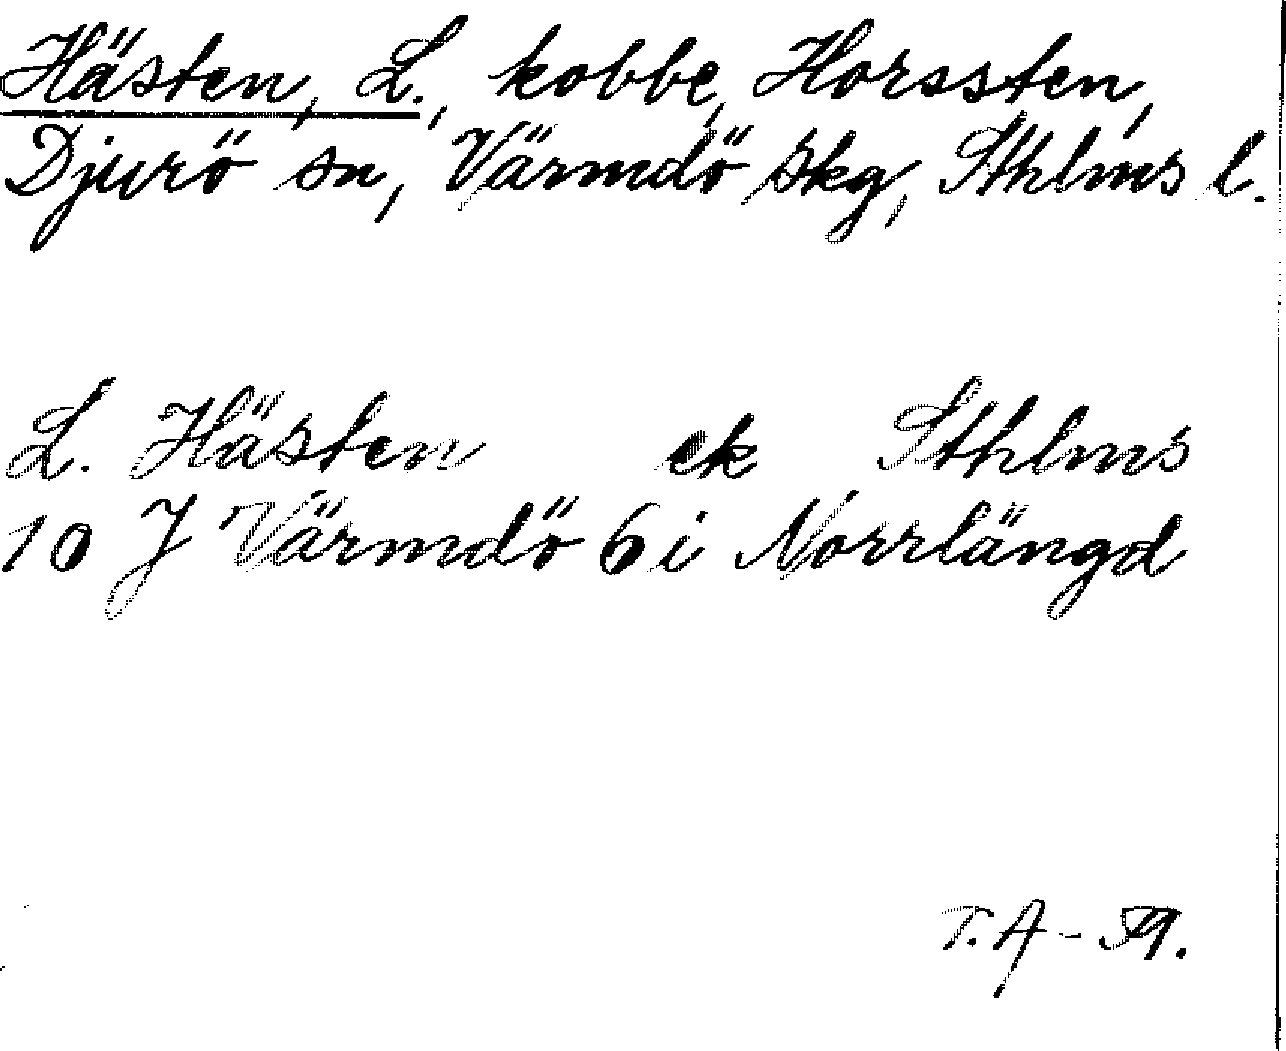 Hästen, L., kobbe, Horssten,
Djurö sn, Värmdö skg, Sthlms l.
L. Hästen ek Sthlms
10 J Värmdö 6 i Norrlängd
T. A -